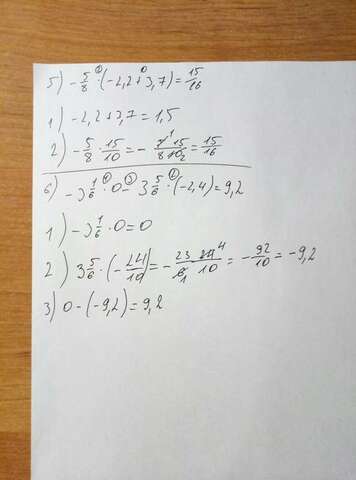 5) -5/8 ·② (-2,2 +① 3,7) = 15/16
1) -2,2 + 3,7 = 1,5
2) -5/8 · 15/10 = - 15/8·10₂ = 15/16
6) -3 1/6 ·① 0 -③ 3 5/6 ·② (-2,4) = 9,2
1) -3 1/6 · 0 = 0
2) 3 5/6 · (-24/10) = - 23 24 4/6 1 10 = - 92/10 = -9,2
3) 0 - (-9,2) = 9,2